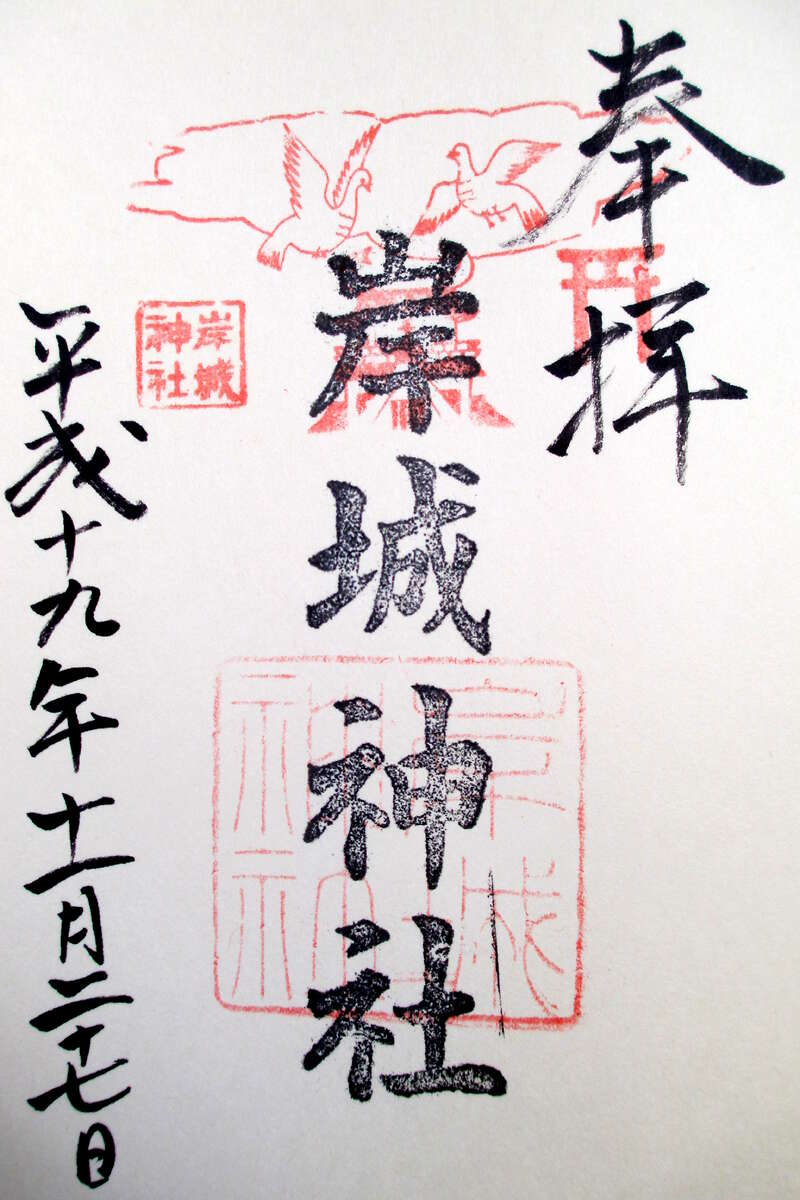 奉拝
岸城神社
岸城
神社
平成十九年十一月二十七日